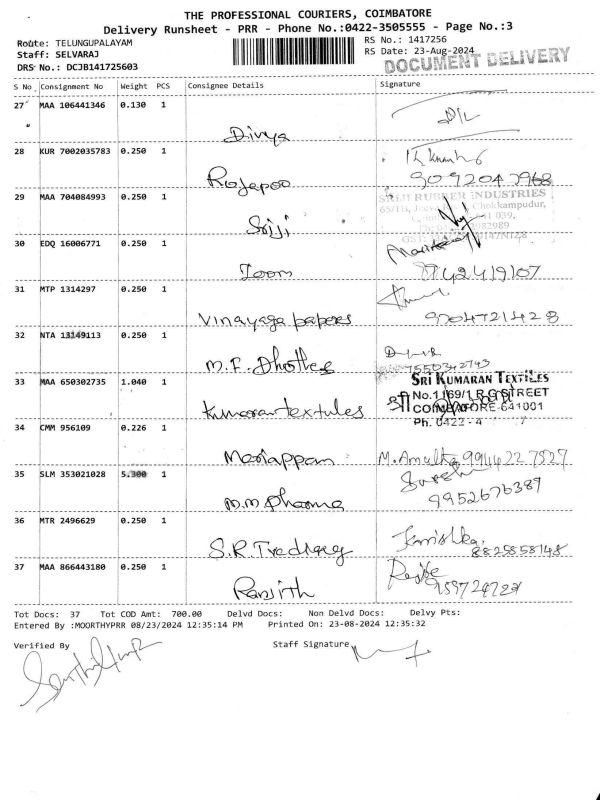 THE PROFESSIONAL COURIERS, COIMBATORE
Delivery Runsheet - PRR - Phone No.:0422-3505555 - Page No.:3
Route: TELUNGUPALAYAM
RS No.: 1417256
Staff: SELVARAJ
RS Date: 23-Aug-2024
DOCUMENT DELIVERY
DRS No.: DCJB141725603
S No Consignment No Weight PCS Consignee Details Signature
27 MAA 106441346 0.130 1
Divya
28 KUR 7002035783 0.250 1
Rojapoo
9092047968
29 MAA 704084993 0.250 1
RUBBER INDUSTRIES
Chokkampudur,
641 039,
Sriji
982989
30 EDQ 16006771 0.250 1
Zoom
31 MTP 1314297 0.250 1
Vinayaga papers 9004721428
32 NTA 13149113 0.250 1
M.F. Dhothes
7550342743
33 MAA 650302735 1.040 1
SRI KUMARAN TEXTILES
No.1169/1 R G STREET
ஸ்ரீ
COIMBATORE-641001
Kumaran textules
Ph. 0422 - 4 7
34 CMM 956109 0.226 1
Mariappan M. Amutha 9944227527
35 SLM 353021028 5.300 1
Suresh
M.M Pharma 9952676389
36 MTR 2496629 0.250 1
S.R. Trading 8825858148
37 MAA 866443180 0.250 1
Ranjith
Tot Docs: 37 Tot COD Amt: 700.00 Delvd Docs: Non Delvd Docs: Delvy Pts:
Entered By :MOORTHYPRR 08/23/2024 12:35:14 PM Printed On: 23-08-2024 12:35:32
Verified By Staff Signature